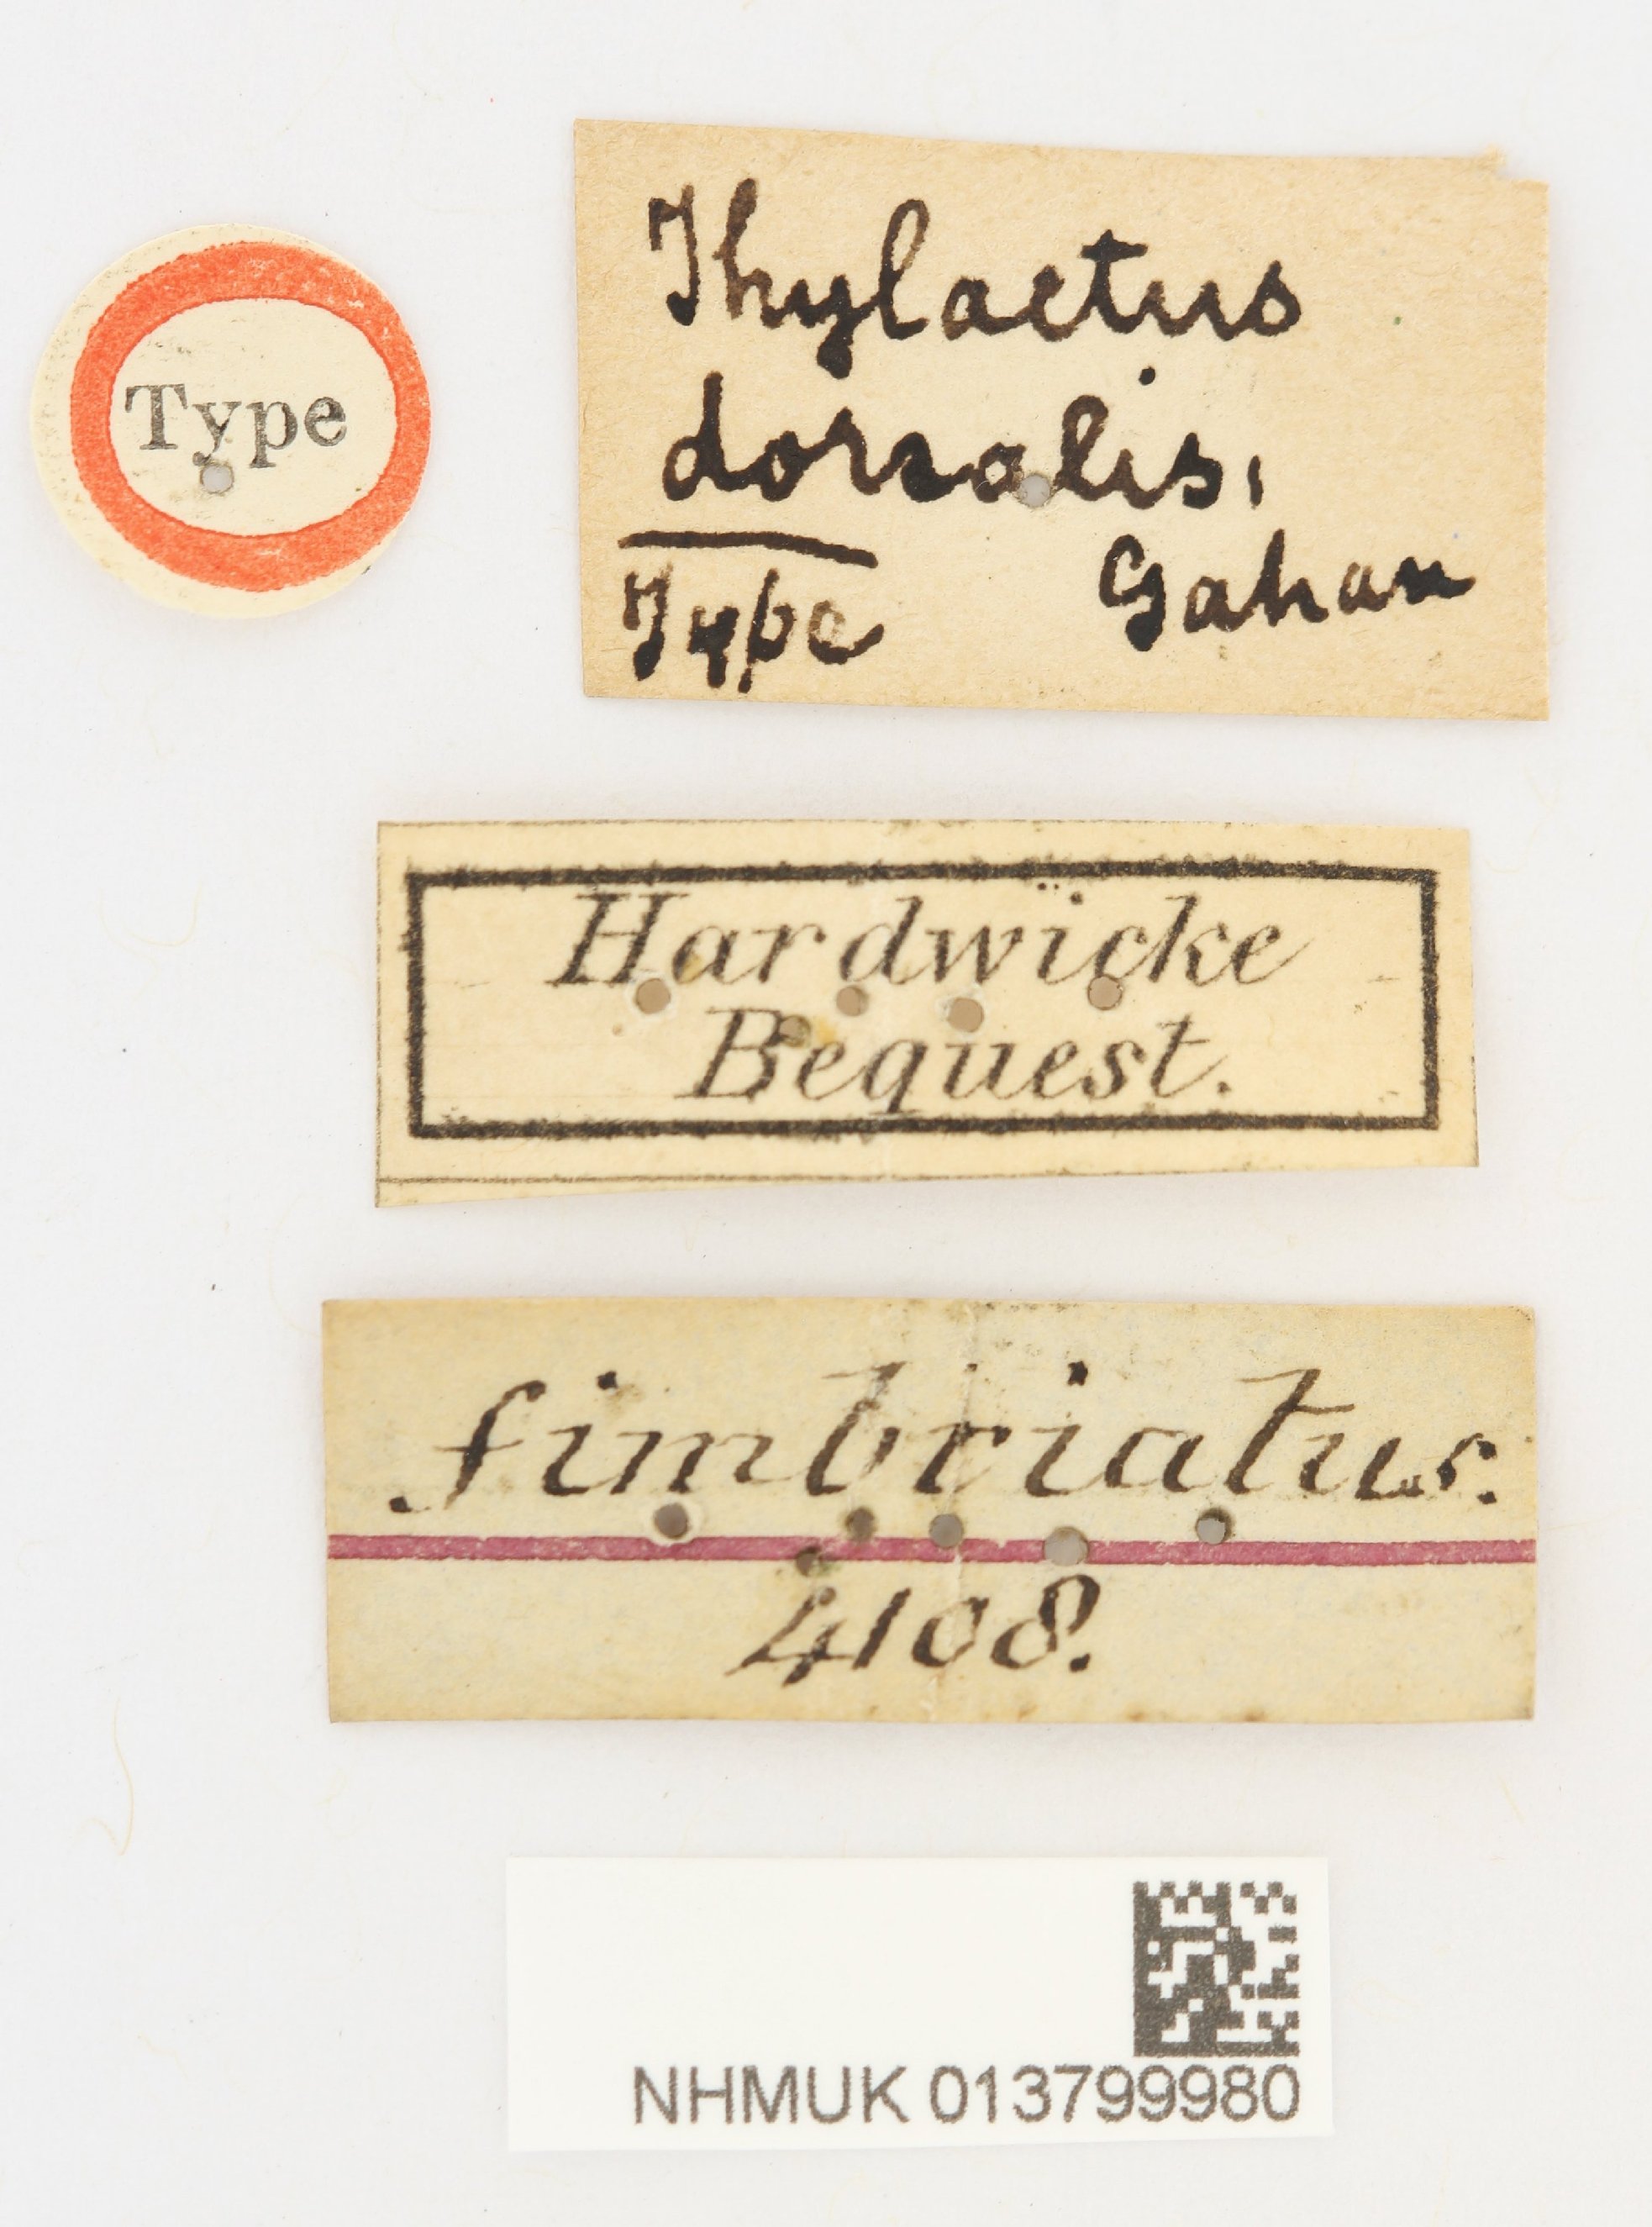 Type
Thylactus
dorsalis,
Gahan
Type
Hardwicke
Bequest.
fimbriatus.
4108.
NHMUK 013799980